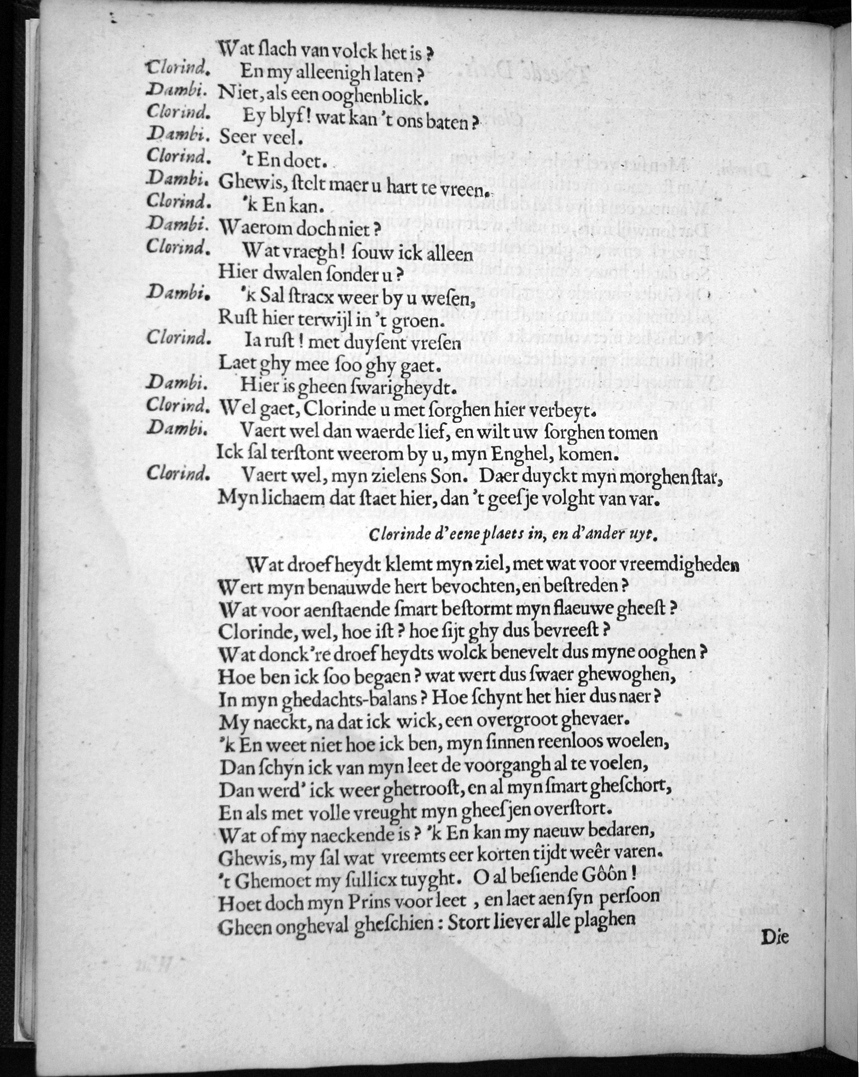 Wat ſlach van volck het is?
Clorind. En my alleenigh laten?
Dambi. Niet, als een ooghenblick.
Clorind. Ey blyf! wat kan 't ons baten?
Dambi. Seer veel.
Clorind. 't En doet.
Dambi. Ghewis, ſtelt maer u hart te vreen.
Clorind. 'k En kan.
Dambi. Waerom doch niet?
Clorind. Wat vraegh! ſouw ick alleen
Hier dwalen ſonder u?
Dambi. 'k Sal ſtracx weer by u weſen,
Ruſt hier terwijl in 't groen.
Clorind. Ia ruſt! met duyſent vreſen
Laet ghy mee ſoo ghy gaet.
Dambi. Hier is gheen ſwarigheydt.
Clorind. Wel gaet, Clorinde u met ſorghen hier verbeyt.
Dambi. Vaert wel dan waerde lief, en wilt uw ſorghen tomen
Ick ſal terſtont weerom by u, myn Enghel, komen.
Clorind. Vaert wel, myn zielens Son. Daer duyckt myn morghenſtar,
Myn lichaem dat ſtaet hier, dan 't geeſje volght van var.
Clorinde d'eene plaets in, en d'ander uyt.
Wat droefheydt klemt myn ziel, met wat voor vreemdigheden
Wert myn benauwde hert bevochten, en beſtreden?
Wat voor aenſtaende ſmart beſtormt myn ſlaeuwe gheeſt?
Clorinde, wel, hoe iſt? hoe ſijt ghy dus bevreeſt?
Wat donck're droefheydts wolck benevelt dus myne ooghen?
Hoe ben ick ſoo begaen? wat wert dus ſwaer ghewoghen,
In myn ghedachts-balans? Hoe ſchynt het hier dus naer?
My naeckt, na dat ick wick, een overgroot ghevaer.
'k En weet niet hoe ick ben, myn ſinnen reenloos woelen,
Dan ſchyn ick van myn leet de voorgangh al te voelen,
Dan werd' ick weer ghetrooſt, en al myn ſmart gheſchort,
En als met volle vreught myn gheeſjen overſtort.
Wat of my naeckende is? 'k En kan my naeuw bedaren,
Ghewis, my ſal wat vreemts eer korten tijdt weêr varen.
't Ghemoet my ſullicx tuyght. O al beſiende Gôôn!
Hoet doch myn Prins voor leet, en laet aen ſyn perſoon
Gheen ongheval gheſchien: Stort liever alle plaghen
Die